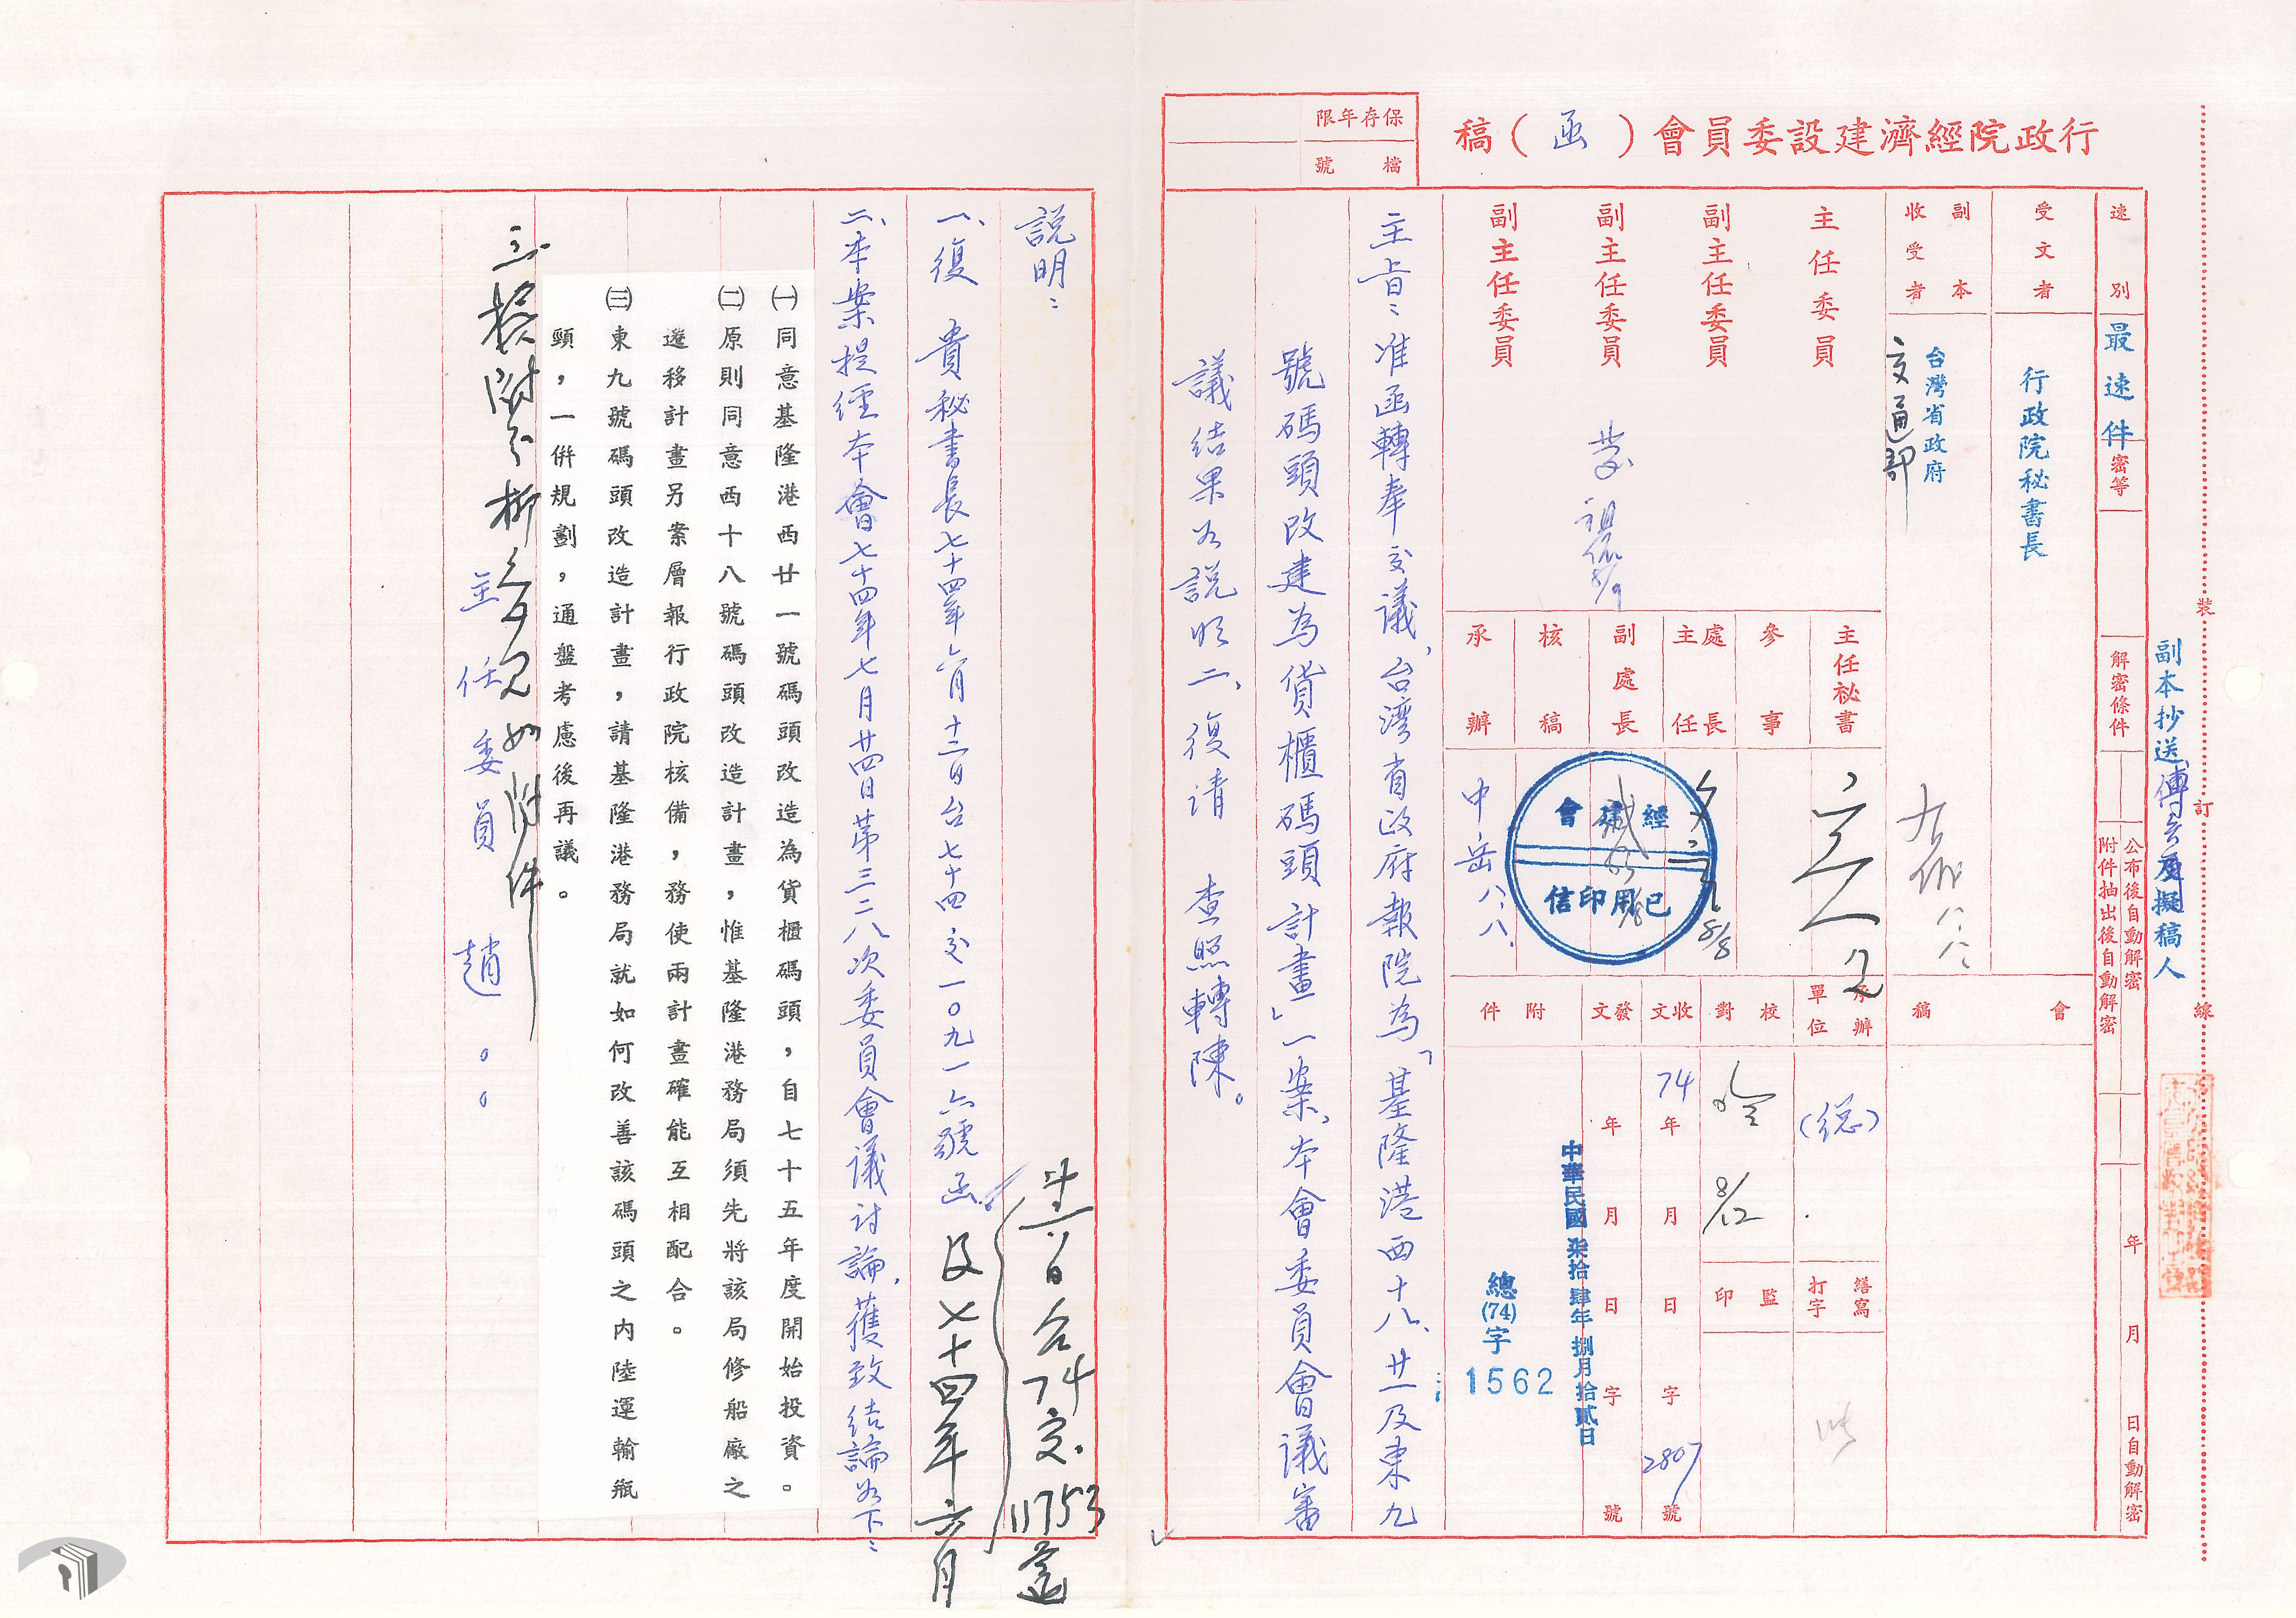 行政院經濟建設委員會（函）稿
保存年限
檔號
裝
訂
線
副本抄送
擬稿人
速別
最速件
密等
解密條件
公布後自動解密
附件抽出後自動解密
年月日自動解密
受文者
行政院秘書長
副本收受者
台灣省政府
交通部
會稿
主任委員
副主任委員
副主任委員
副主任委員
主任祕書
參事
處長
主任
副處長
核稿
承辦
8/8
中岳八、八、
經建會
已用印信
承辦單位
(總)
校對
8/12
繕寫
打字
監印
收文
74年月日字2807號
發文
年月日字號
中華民國柒拾肆年捌月拾貳日
附件
總(74)字
1562
主旨：准函轉奉交議，台灣省政府報院為「基隆港西十八、廿一及東九
號碼頭改建為貨櫃碼頭計畫」一案，本會委員會議審
議結果如說明二，復請　查照轉陳。
說明：
一、復　貴秘書長七十四年六月十二日台七十四交一〇九一六號函
及七十四年六月
日台74交11753
二、本案提經本會七十四年七月廿四日第三二八次委員會議討論，獲致結論如下：
㈠同意基隆港西廿一號碼頭改造為貨櫃碼頭，自七十五年度開始投資。
㈡原則同意西十八號碼頭改造計畫，惟基隆港務局須先將該局修船廠之
遷移計畫另案層報行政院核備，務使兩計畫確能互相配合。
㈢東九號碼頭改造計畫，請基隆港務局就如何改善該碼頭之內陸運輸瓶
頸，一併規劃，通盤考慮後再議。
三、檢附
如附件
主任委員　趙。。